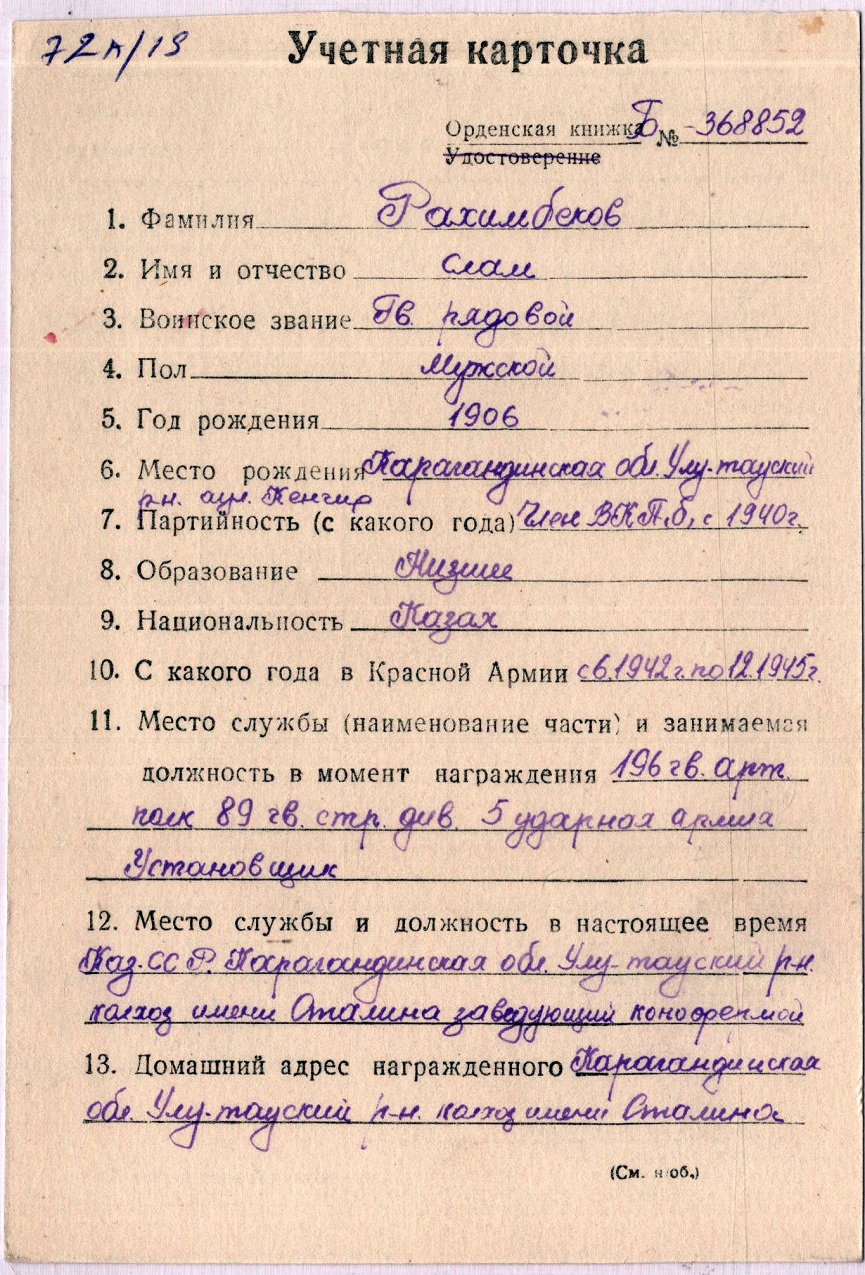 72к/19
Учетная карточка
Орденская книжка Б № -368852
Удостоверение
1. Фамилия Рахимбеков
2. Имя и отчество Слам
3. Воинское звание Гв. рядовой
4. Пол Мужской
5. Год рождения 1906
6. Место рождения Карагандинская обл. Улу-тауский
рн. аул. Кенгир
7. Партийность (с какого года) Член ВКП,б, с 1940г.
8. Образование Низшее
9. Национальность Казах
10. С какого года в Красной Армии с 6.1942г. по 12.1945г.
11. Место службы (наименование части) и занимаемая
должность в момент награждения 196 гв. арт.
полк 89 гв. стр. див. 5 ударная армия
Установщик
12. Место службы и должность в настоящее время
Каз. ССР. Карагандинская обл. Улу-тауский р-н.
колхоз имени Сталина заведующий конофермой
13. Домашний адрес награжденного Карагандинская
обл. Улу-тауский р-н. колхоз имени Сталина
(См. н/об.)